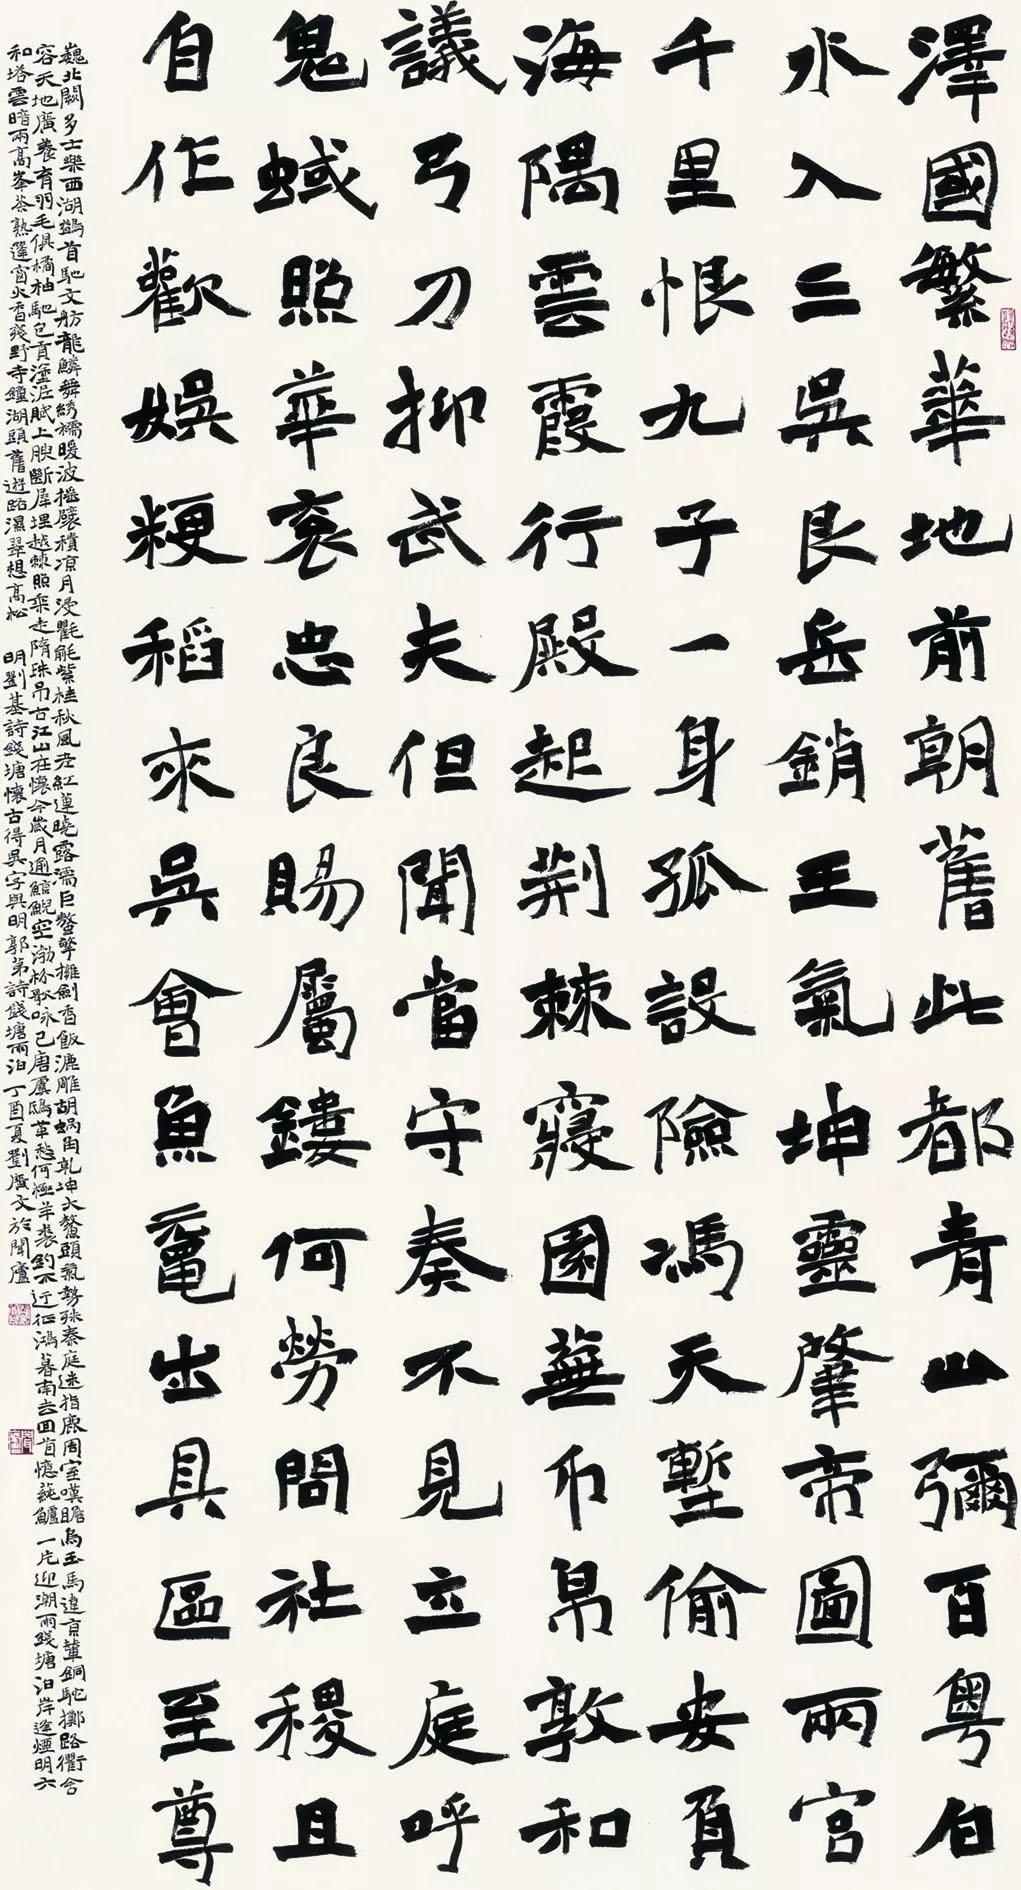 澤國繁華地前朝舊此都青山彌百粤白
水入三吳艮岳銷王氣坤靈肇帝圖兩宮
千里恨九子一身孤設險馮天塹偷安負
海隅雲霞行殿起荆棘寢園蕪币帛敦和
議弓刀抑武夫但聞當守奏不見立庭呼
鬼蜮照華衮忠良賜屬鏤何勞問社稷且
自作歡娱粳稻來吳會魚黿出具區至尊
巍北闕多士樂西湖鷁首馳文舫龍鱗舞綉襦暖波摇襞積凉月浸氍毹紫桂秋風老紅蓮曉露濡巨螯擎擁劍香飯漉雕胡蝸角乾坤大鰲頭氣勢殊秦庭迷指鹿周室嘆瞻烏玉馬違京輦銅駝擲路衢含
容天地廣養育羽毛俱橘柚馳包貢塗泥賦上腴斷犀埋越棘照乘走隋珠吊古江山在懷今歲月逾鯨鯢空渤歌咏已唐虞鴟革愁何極羊裘釣不迂征鴻暮南去回首憶蒓鱸 一片迎潮雨錢塘泊岸逢煙明六
和塔雲暗兩高峯茶熟篷窗火香殘野寺鐘湖頭舊遊路濕翠想高松 明劉基詩錢塘懷古得吳字與明郭第詩錢塘雨泊 丁酉夏劉廣文於聞廬